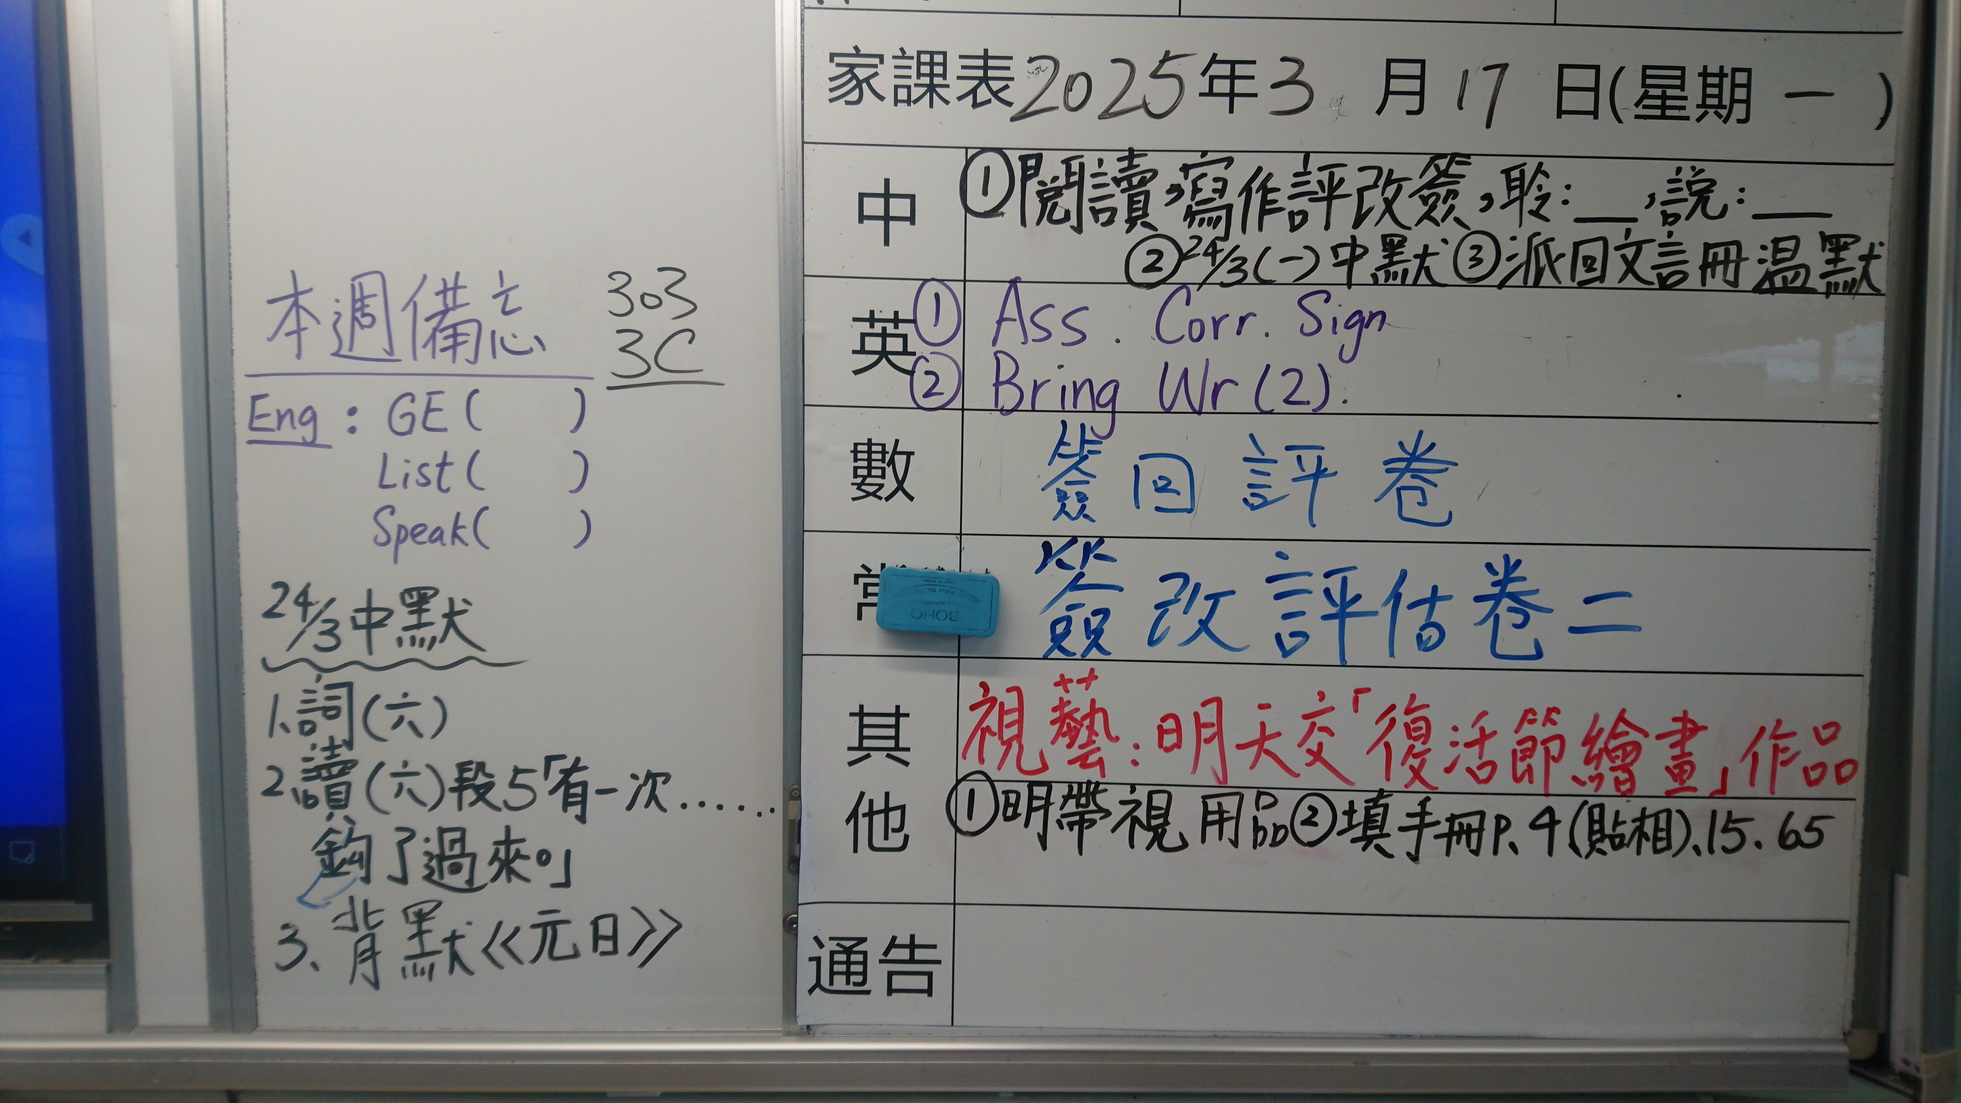 本週備忘
303
3C
Eng : GE (    )
List (    )
Speak (    )
24/3 中默
1. 詞(六)
2. 讀(六)段5「有一次......
鈎了過來。」
3、背默《元日》
家課表 2025年3月17日(星期一)
中
①閱讀,寫作評改簽,聆:__,說:__
②24/3(一)中默③派回文言冊温默
英
① Ass. Corr. Sign
② Bring Wr (2).
數
簽回評卷
常
簽改評估卷二
BOHO
其他
視藝:明天交「復活節繪畫」作品
①明帶視用品②填手冊P.4(貼相)、15、65
通告